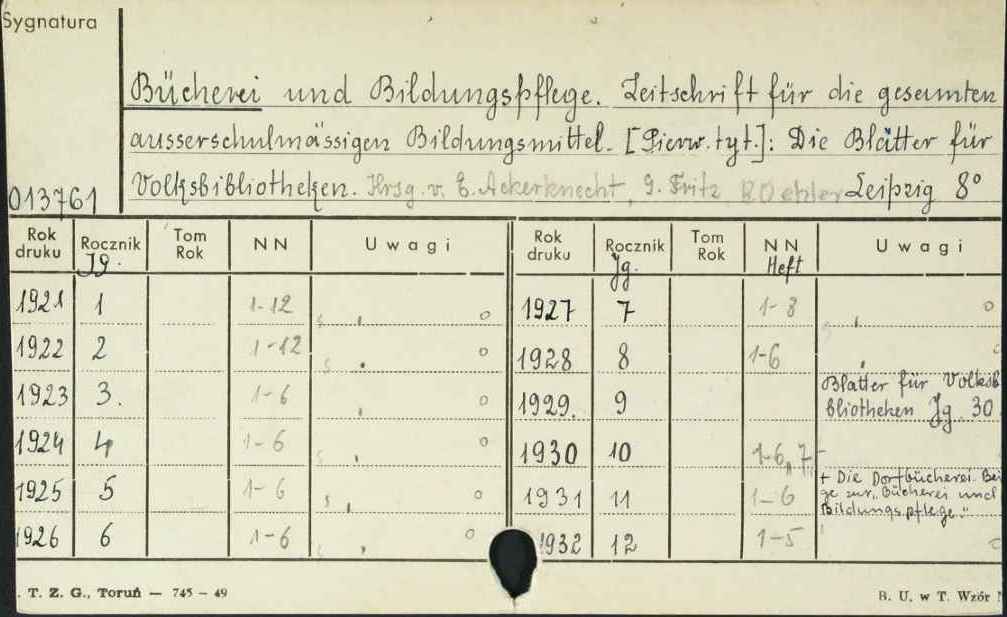 Sygnatura
Bücherei und Bildungspflege. Zeitschrift für die gesamten
ausserschulmässigen Bildungsmittel. [Pierw. tyt.]: Die Blätter für
013761 Volksbibliotheken. Hrsg. v. E. Ackerknecht, G. Fritz, Leipzig 8°
Rok druku Rocznik Jg. Tom Rok NN Uwagi Rok druku Rocznik Jg. Tom Rok NN Heft Uwagi
1921 1 1-12 1927 7 1-8
1922 2 1-12 1928 8 1-6
1923 3. 1-6 1929. 9 Blatter für Volksb
bliotheken Jg. 30
1924 4 1-6 1930 10 1-6, 7,
1925 5 1-6 1931 11 1-6 + Die Dorfbücherei. Bei
ge zur "Bücherei und
Bildungspflege."
1926 6 1-6 1932 12 1-5
. T. Z. G., Toruń — 745 - 49 B. U. w T. Wzór